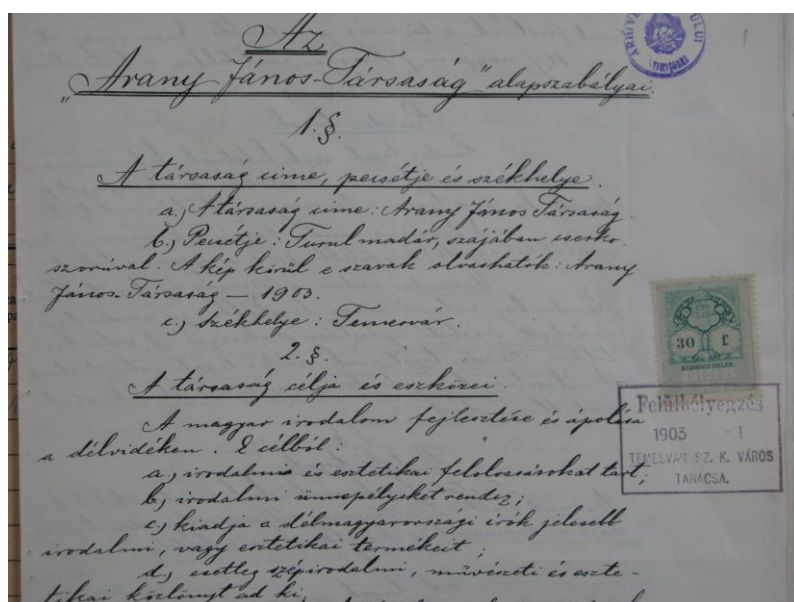 Az
"Arany János-Társaság" alapszabályai.
1. §.
A társaság cime, pecsétje és székhelye.
a.) A társaság cime: Arany János Társaság.
b.) Pecsétje: Turul madár, szájában cserko-
szorúval. A kép körül e szavak olvashatók: Arany
János-Társaság — 1903.
c.) Székhelye: Temesvár.
2. §.
A társaság célja és eszközei.
A magyar irodalom fejlesztése és ápolása
a délvidéken. E célból:
a.) irodalmi és esztetikai felolvasásokat tart;
b.) irodalmi ünnepélyeket rendez;
c.) kiadja a délmagyarországi irók jelesebb
irodalmi, vagy esztetikai termékeit;
d.) esetleg szépirodalmi, művészeti és eszte-
tikai közlönyt ad ki.
30 f
Felülbélyegzés
1903 -1
TEMESVÁR SZ. K. VÁROS
TANÁCSA.